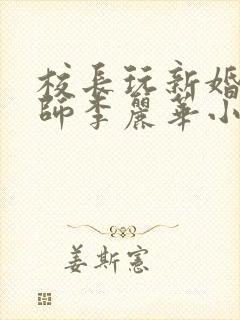 校長玩新婚
師李麗華小
姜斯憲